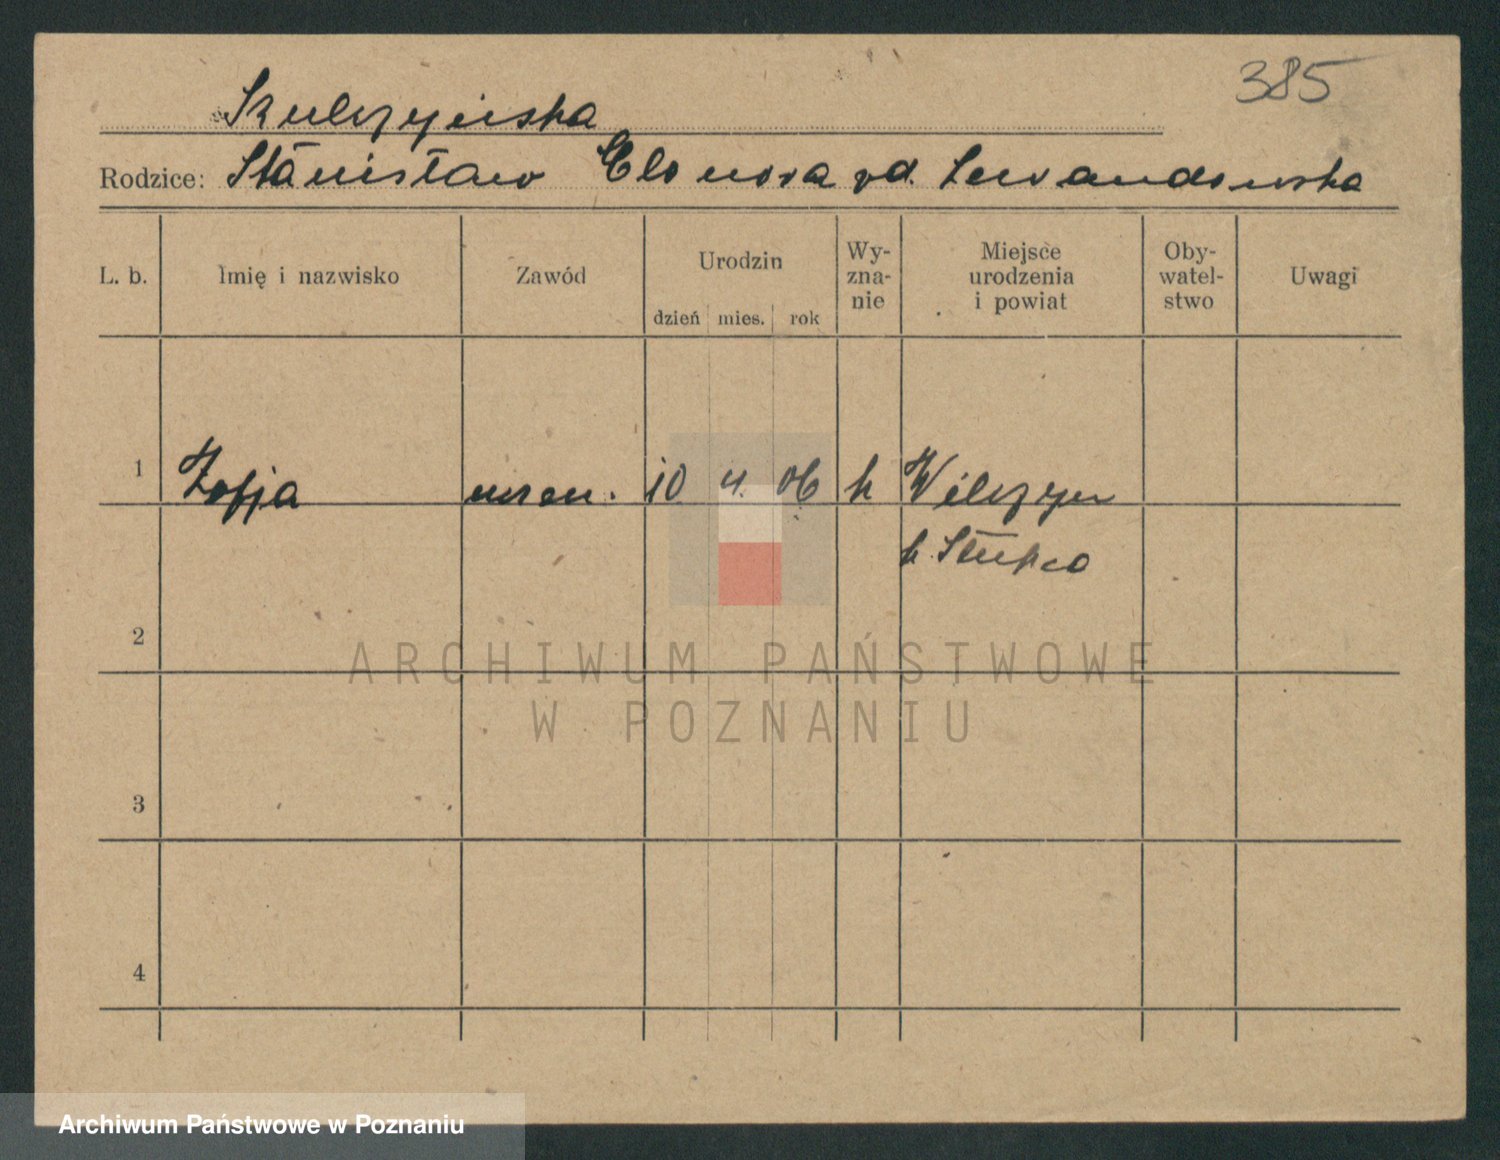 385
Szulczyńska
Rodzice: Stanisław Eleonora zd. Lewandowska
L. b. Imię i nazwisko Zawód Urodzin dzień mies. rok Wy-zna-nie Miejsce urodzenia i powiat Oby-watel-stwo Uwagi
1 Zofja 10 4. 06 k Wilczyn
k. Słupca
2
ARCHIWUM PAŃSTWOWE
W POZNANIU
3
4
Archiwum Państwowe w Poznaniu